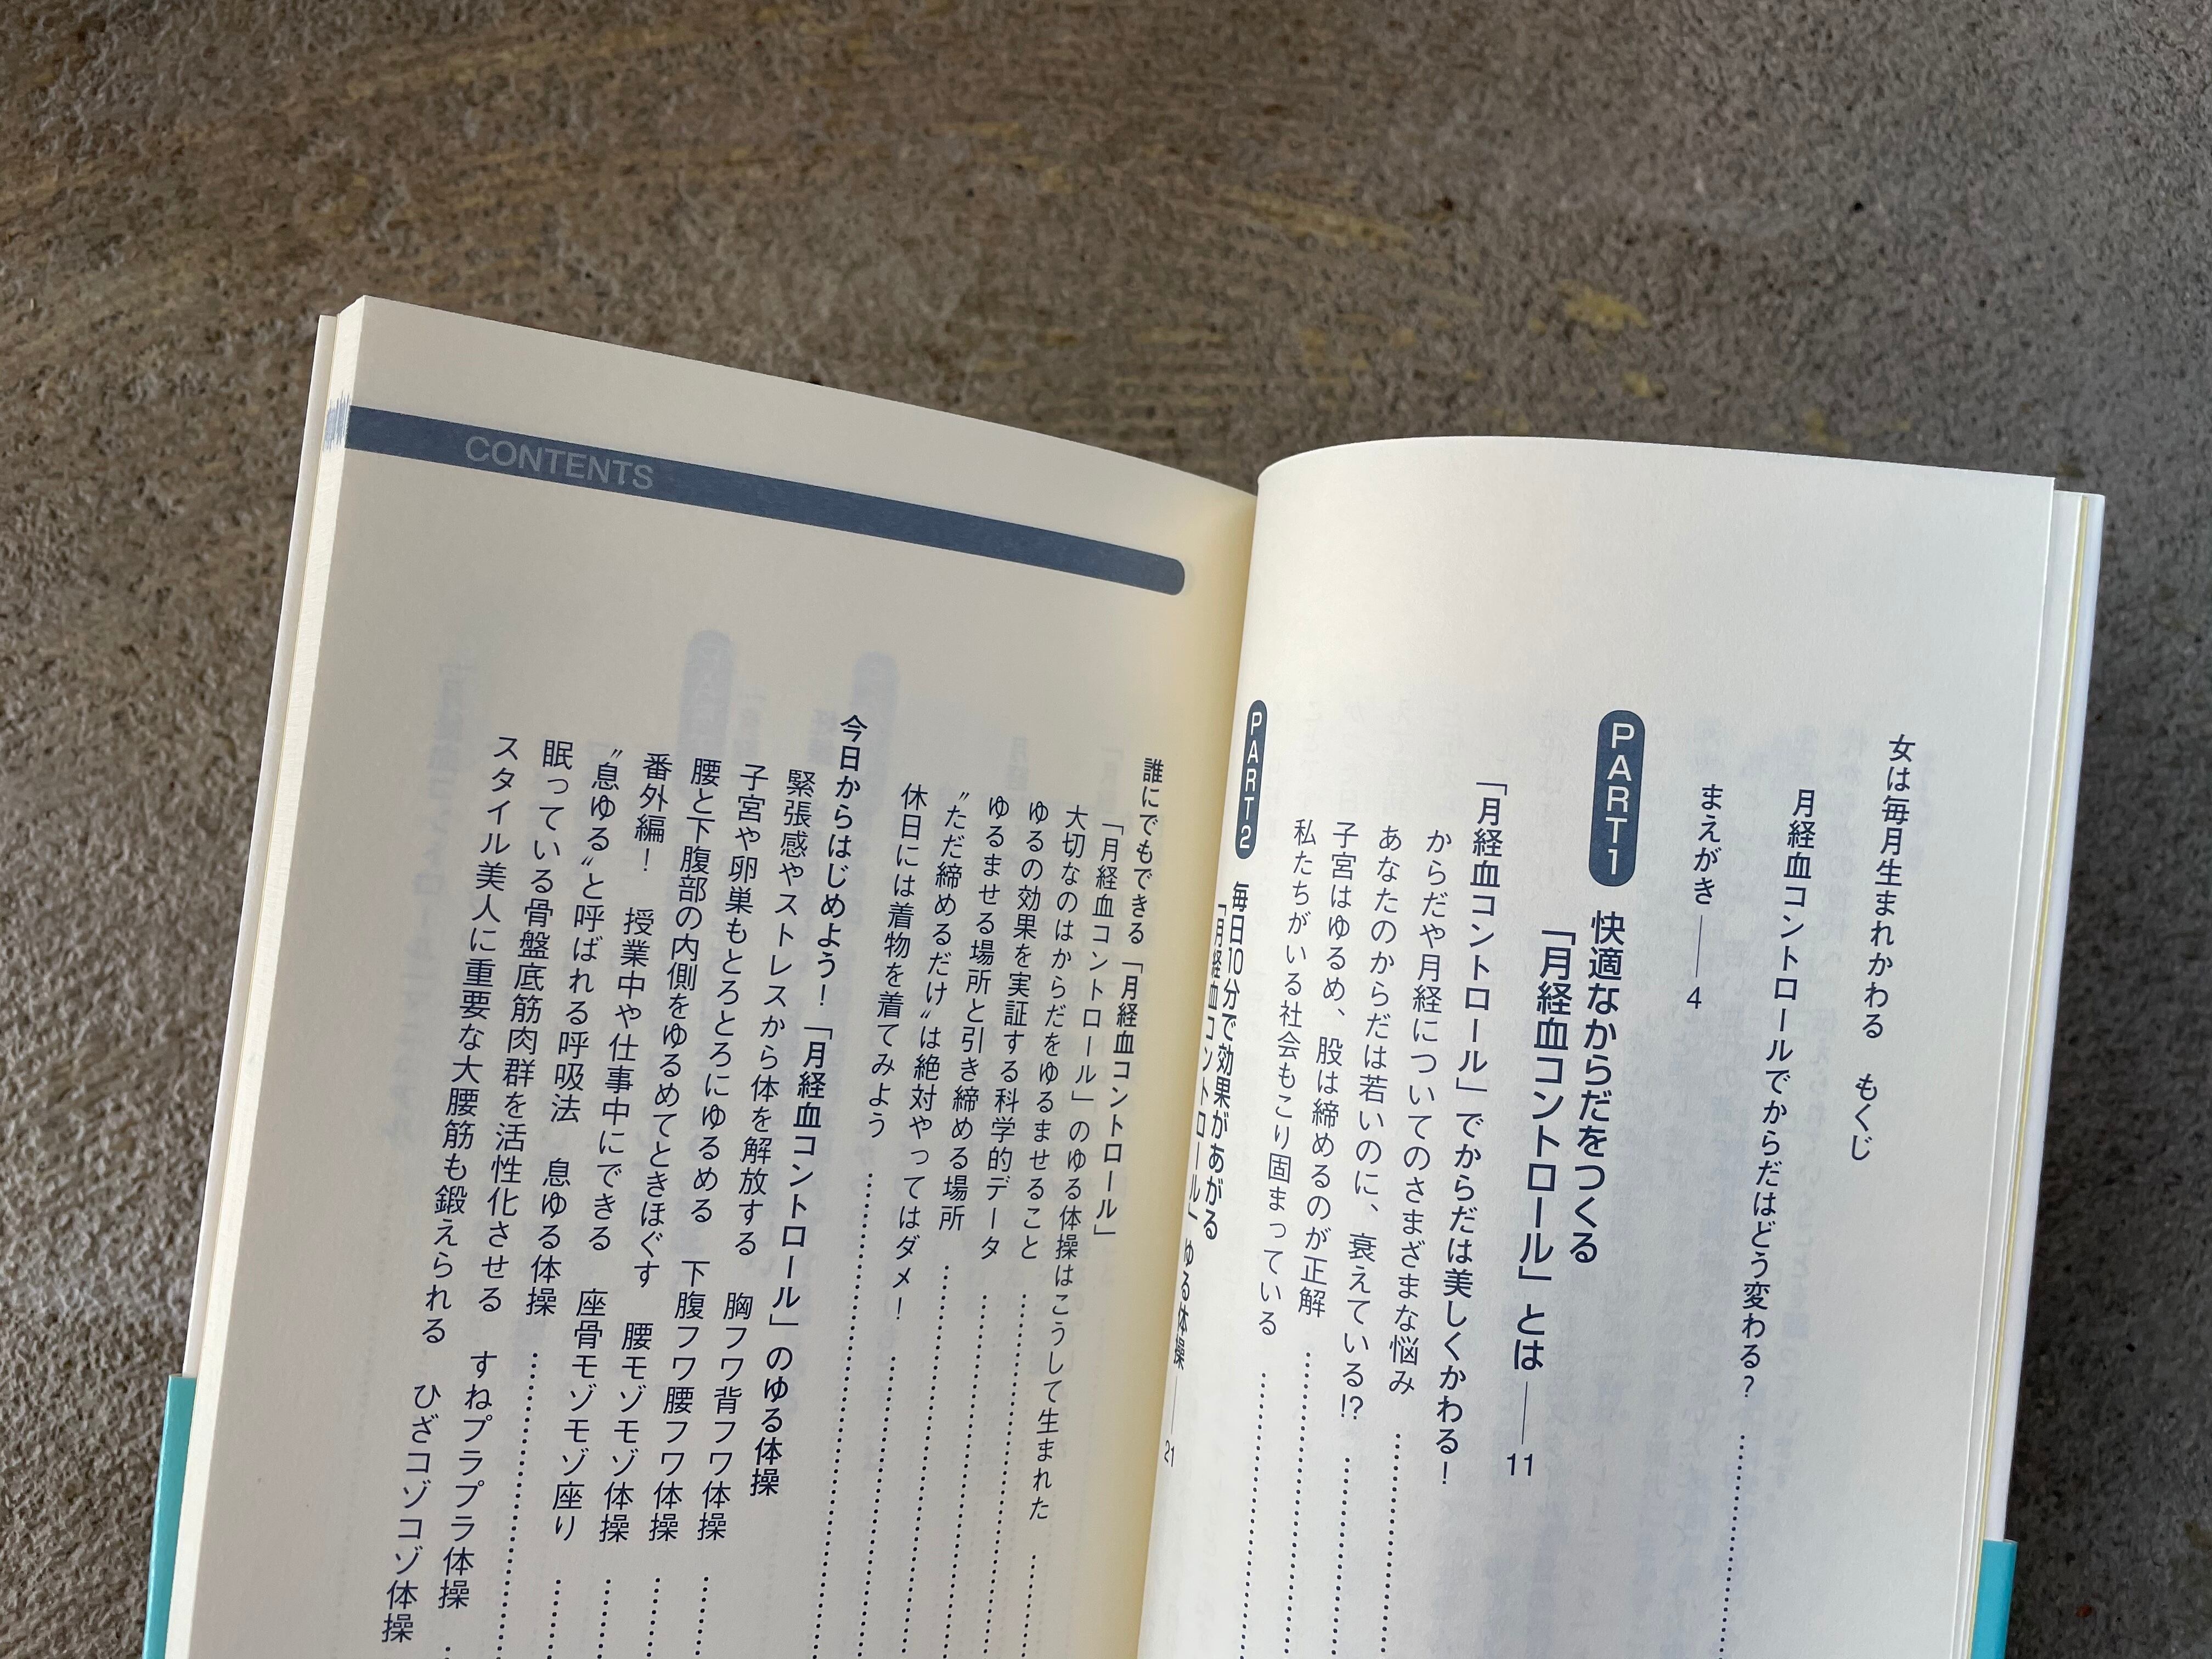 女は毎月生まれかわる　もくじ
月経血コントロールでからだはどう変わる？
まえがき――4
PART1
快適なからだをつくる
「月経血コントロール」とは――11
「月経血コントロール」でからだは美しくかわる！
からだや月経についてのさまざまな悩み
あなたのからだは若いのに、衰えている!?
子宮はゆるめ、股は締めるのが正解
私たちがいる社会もこり固まっている
PART2
毎日10分で効果があがる
「月経血コントロール」ゆる体操――21
CONTENTS
誰にでもできる「月経血コントロール」
「月経血コントロール」のゆる体操はこうして生まれた
大切なのはからだをゆるませること
ゆるの効果を実証する科学的データ
ゆるませる場所と引き締める場所
〝ただ締めるだけ〟は絶対やってはダメ！
休日には着物を着てみよう
今日からはじめよう！「月経血コントロール」のゆる体操
緊張感やストレスから体を解放する　胸フワ背フワ体操
子宮や卵巣もとろとろにゆるめる　下腹フワ腰フワ体操
腰と下腹部の内側をゆるめてときほぐす　腰モゾモゾ体操
番外編！　授業中や仕事中にできる　座骨モゾモゾ座り
〝息ゆる〟と呼ばれる呼吸法　息ゆる体操
眠っている骨盤底筋肉群を活性化させる　すねプラプラ体操
スタイル美人に重要な大腰筋も鍛えられる　ひざコゾコゾ体操